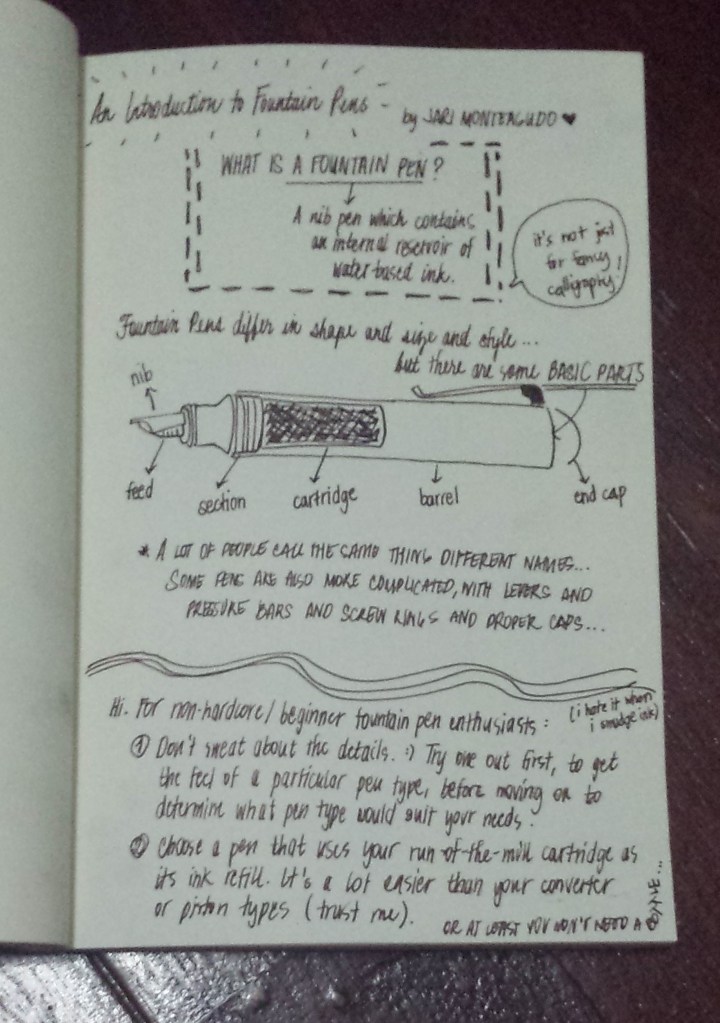 An Introduction to Fountain Pens -
by JARI MONTEAGUDO ♥
WHAT IS A FOUNTAIN PEN?
A nib pen which contains
an internal reservoir of
water based ink.
it's not just
for fancy
calligraphy!
Fountain Pens differ in shape and size and style...
but there are some BASIC PARTS
nib
feed
section
cartridge
barrel
end cap
* A LOT OF PEOPLE CALL THE SAME THING DIFFERENT NAMES...
SOME PENS ARE ALSO MORE COMPLICATED, WITH LEVERS AND
PRESSURE BARS AND SCREW RINGS AND PROPER CAPS...
Hi. For non-hardcore/beginner fountain pen enthusiasts:
(i hate it when
i smudge ink)
① Don't sweat about the details. :) Try one out first, to get
the feel of a particular pen type, before moving on to
determine what pen type would suit your needs.
② Choose a pen that uses your run-of-the-mill cartridge as
its ink refill. It's a lot easier than your converter
or piston types (trust me).
OR AT LEAST YOU WON'T NEED A BOTTLE...